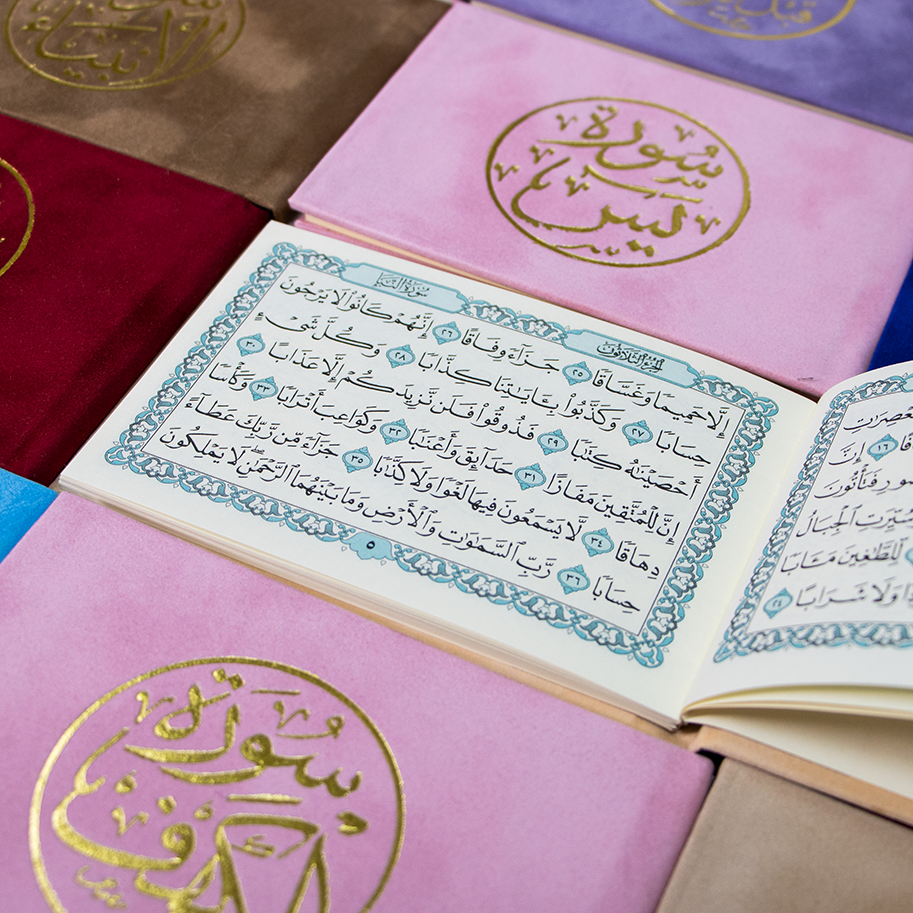 الأنبياء
سُورَة
يس
الجزء الثلاثون
سورة النبإ
إِلَّا حَمِيمًا وَغَسَّاقًا ٢٥ جَزَآءً وِفَاقًا ٢٦ إِنَّهُمْ كَانُوا۟ لَا يَرْجُونَ
حِسَابًا ٢٧ وَكَذَّبُوا۟ بِـَٔايَـٰتِنَا كِذَّابًا ٢٨ وَكُلَّ شَىْءٍ
أَحْصَيْنَـٰهُ كِتَـٰبًا ٢٩ فَذُوقُوا۟ فَلَن نَّزِيدَكُمْ إِلَّا عَذَابًا ٣٠
إِنَّ لِلْمُتَّقِينَ مَفَازًا ٣١ حَدَآئِقَ وَأَعْنَـٰبًا ٣٢ وَكَوَاعِبَ أَتْرَابًا ٣٣ وَكَأْسًا
دِهَاقًا ٣٤ لَّا يَسْمَعُونَ فِيهَا لَغْوًا وَلَا كِذَّٰبًا ٣٥ جَزَآءً مِّن رَّبِّكَ عَطَآءً
حِسَابًا ٣٦ رَّبِّ ٱلسَّمَـٰوَٰتِ وَٱلْأَرْضِ وَمَا بَيْنَهُمَا ٱلرَّحْمَـٰنِ لَا يَمْلِكُونَ
٥
١٦ إِنَّ
فَتَأْتُونَ
سُيِّرَتِ ٱلْجِبَالُ
لِّلطَّـٰغِينَ مَـَٔابًا
وَلَا شَرَابًا ٢٤
سُورَة
الكهف